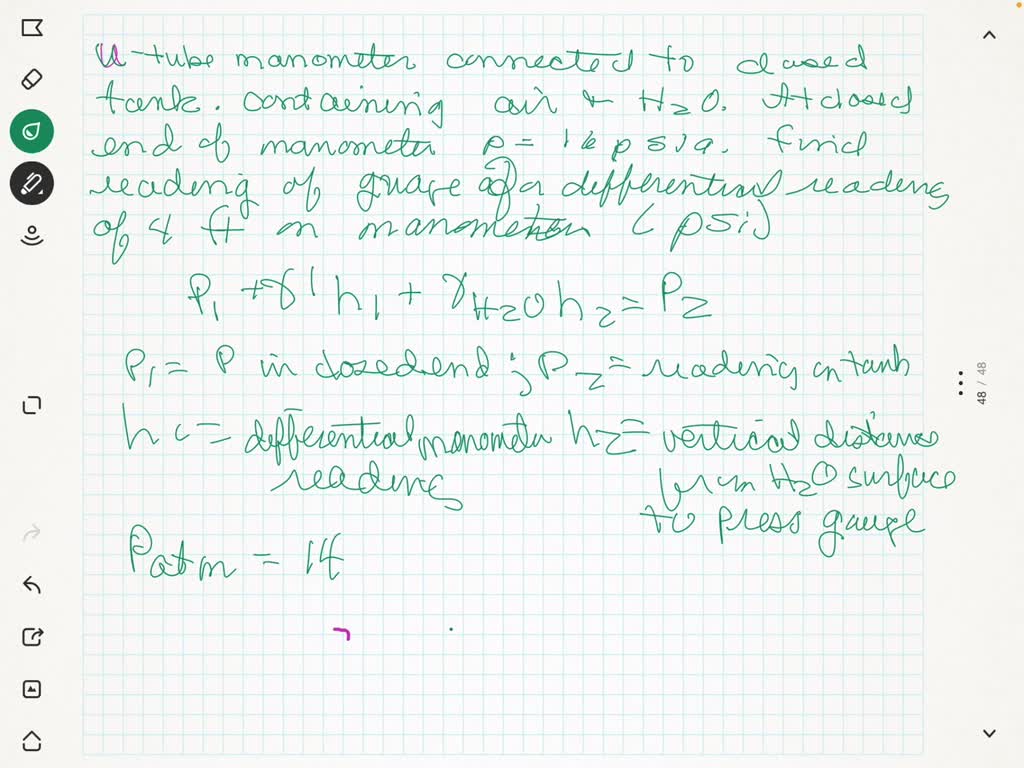 U-tube manometer connected to closed
tank. containing air & H2O. At closed
end of manometer p = 16 psia. Find
reading of guage for a differential reading
of 4 ft on manometer (psi)
P1 + γ' h1 + γH2O h2 = P2
P1 = P in closed end ; P2 = reading in tank
h1 = differential manometer
reading
h2 = vertical distance
from H2O surface
to press gauge
Patm = 14
48 / 48